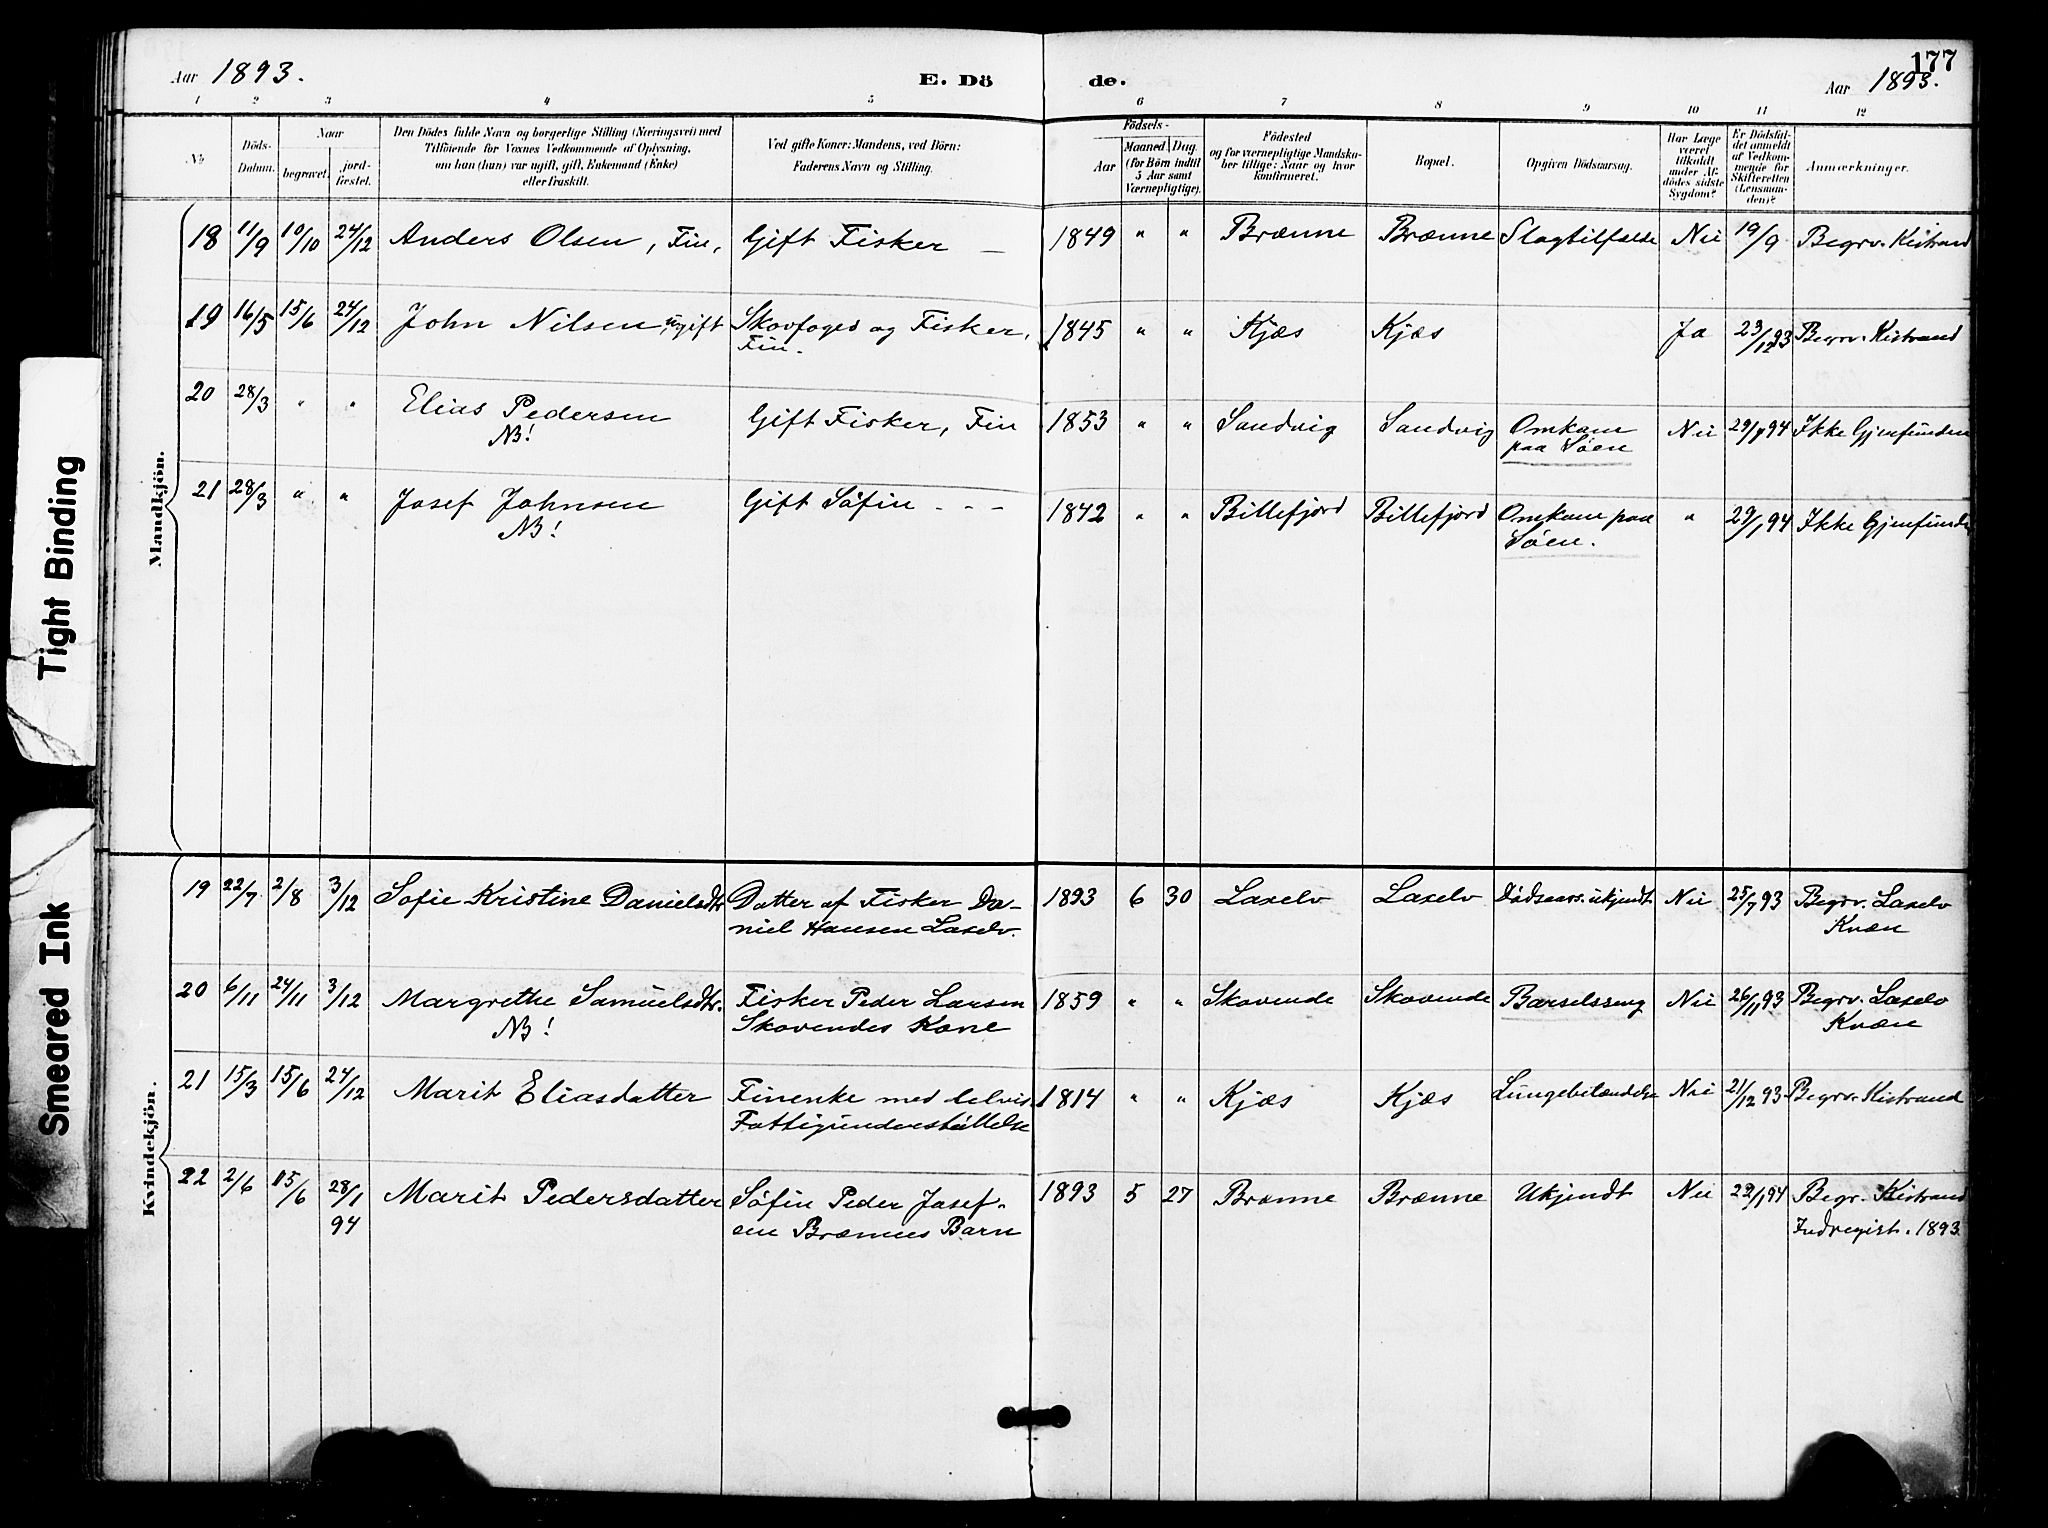 177
Aar 1893. E. Dö de. Aar 1893.
1 2 3 4 5 6 7 8 9 10 11 12
No
Döds-
Datum.
Naar
begravet.
jord-
fæstet.
Den Dödes fulde Navn og borgerlige Stilling (Næringsvei) med
Tilföiende for Voxnes Vedkommende af Oplysning,
om han (hun) var ugift, gift, Enkemand (Enke)
eller fraskilt.
Ved gifte Koner: Mandens, ved Börn:
Faderens Navn og Stilling.
Födsels-
Aar
Maaned Dag
(for Börn indtil
5 Aar samt
Værnepligtige).
Födested
og for værnepligtige Mandska-
ber tillige: Naar og hvor
konfirmeret.
Bopæl.
Opgiven Dödsaarsag.
Har Læge
været
tilkaldt
under Af-
dödes sidste
Sygdom?
Er Dödsfal-
det anmeldt
af Vedkom-
mende for
Skifteretten
(Lensman-
den)?
Anmærkninger.
Mandkjön.
18 11/9 10/10 24/12 Anders Olsen, Fin, Gift Fisker — 1849 " " Brænne Brænne Slagtilfælde Nei 19/9 Begrv. Kistrand
19 16/5 15/6 24/12 John Nilsen, ugift Skovfoged og Fisker, 1845 " " Kjæs Kjæs Ja 23/12 93 Begrv. Kistrand
Fin.
20 28/3 " " Elias Pedersen Gift Fisker, Fin 1853 " " Sandvig Sandvig Omkom Nei 29/1 94 Ikke Gjenfunden
NB! paa Søen
21 28/3 " " Josef Johnsen Gift Søfin - - - 1842 " " Billefjord Billefjord Omkom paa " 29/1 94 Ikke Gjenfunden
NB! Søen.
Kvindekjön.
19 22/7 2/8 3/12 Sofie Kristine Danielsdtr Datter af Fisker Da- 1893 6 30 Laxelv Laxelv Dødsaars. ukjendt Nei 25/7 93 Begrv. Laxelv
niel Hansen Laxelv. Kvæn
20 6/11 24/11 3/12 Margrethe Samuelsdtr. Fisker Peder Larsen 1859 " " Skovende Skovende Barselsseng Nei 26/11 93 Begrv. Laxelv
NB! Skovendes Kone Kvæn
21 15/3 15/6 24/12 Marit Eliasdatter Finenke med delvis 1814 " " Kjæs Kjæs Lungebetændelse Nei 21/12 93 Begrv. Kistrand
Fattigunderstøttelse
22 2/6 15/6 28/1 Marit Pedersdatter Søfin Peder Josef- 1893 5 27 Brænne Brænne Ukjendt Nei 29/1 94 Begr. Kistrand
94 sen Brænnes Barn Indregist. 1893.
Tight Binding
Smeared Ink